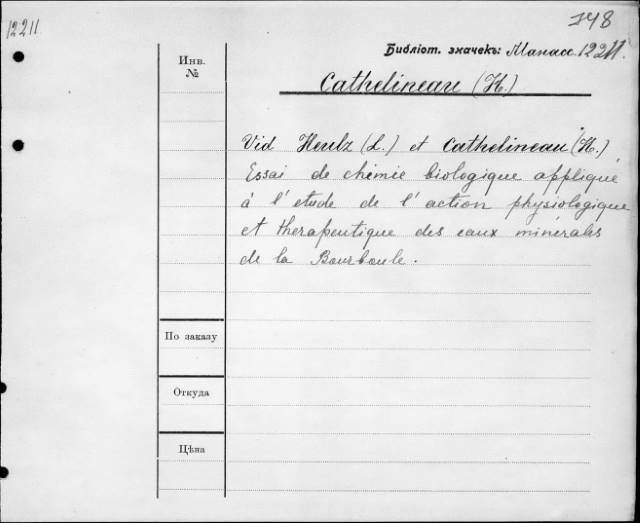 12211.
748
Инв.
№
Библіот. значекъ: Манасс. 12211.
Cathelineau (H.)
Vid Heulz (L.) et Cathelineau (H.)
Essai de chimie biologique appliqué
à l'etude de l'action physiologique
et therapeutique des eaux minérales
de la Bourboule.
По заказу
Откуда
Цѣна